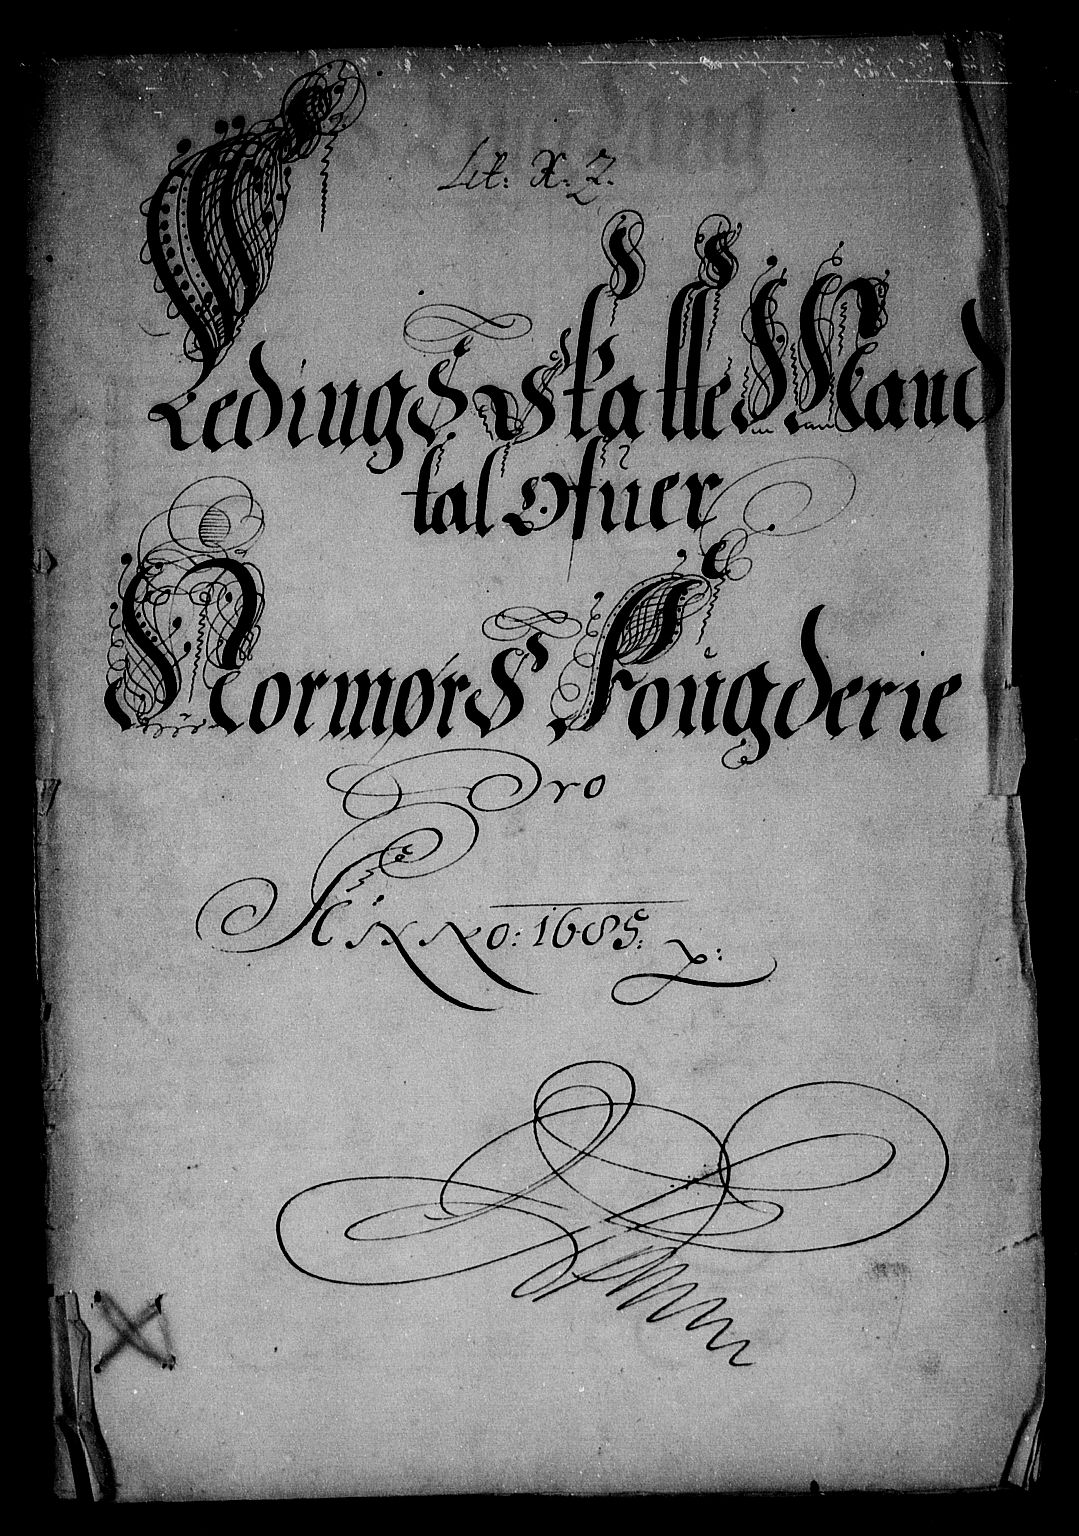 Lit: X. Z.
LedingsSkatteMand
tal Ofuer
Normørs Fougderie
Pro
Anno: 1685.